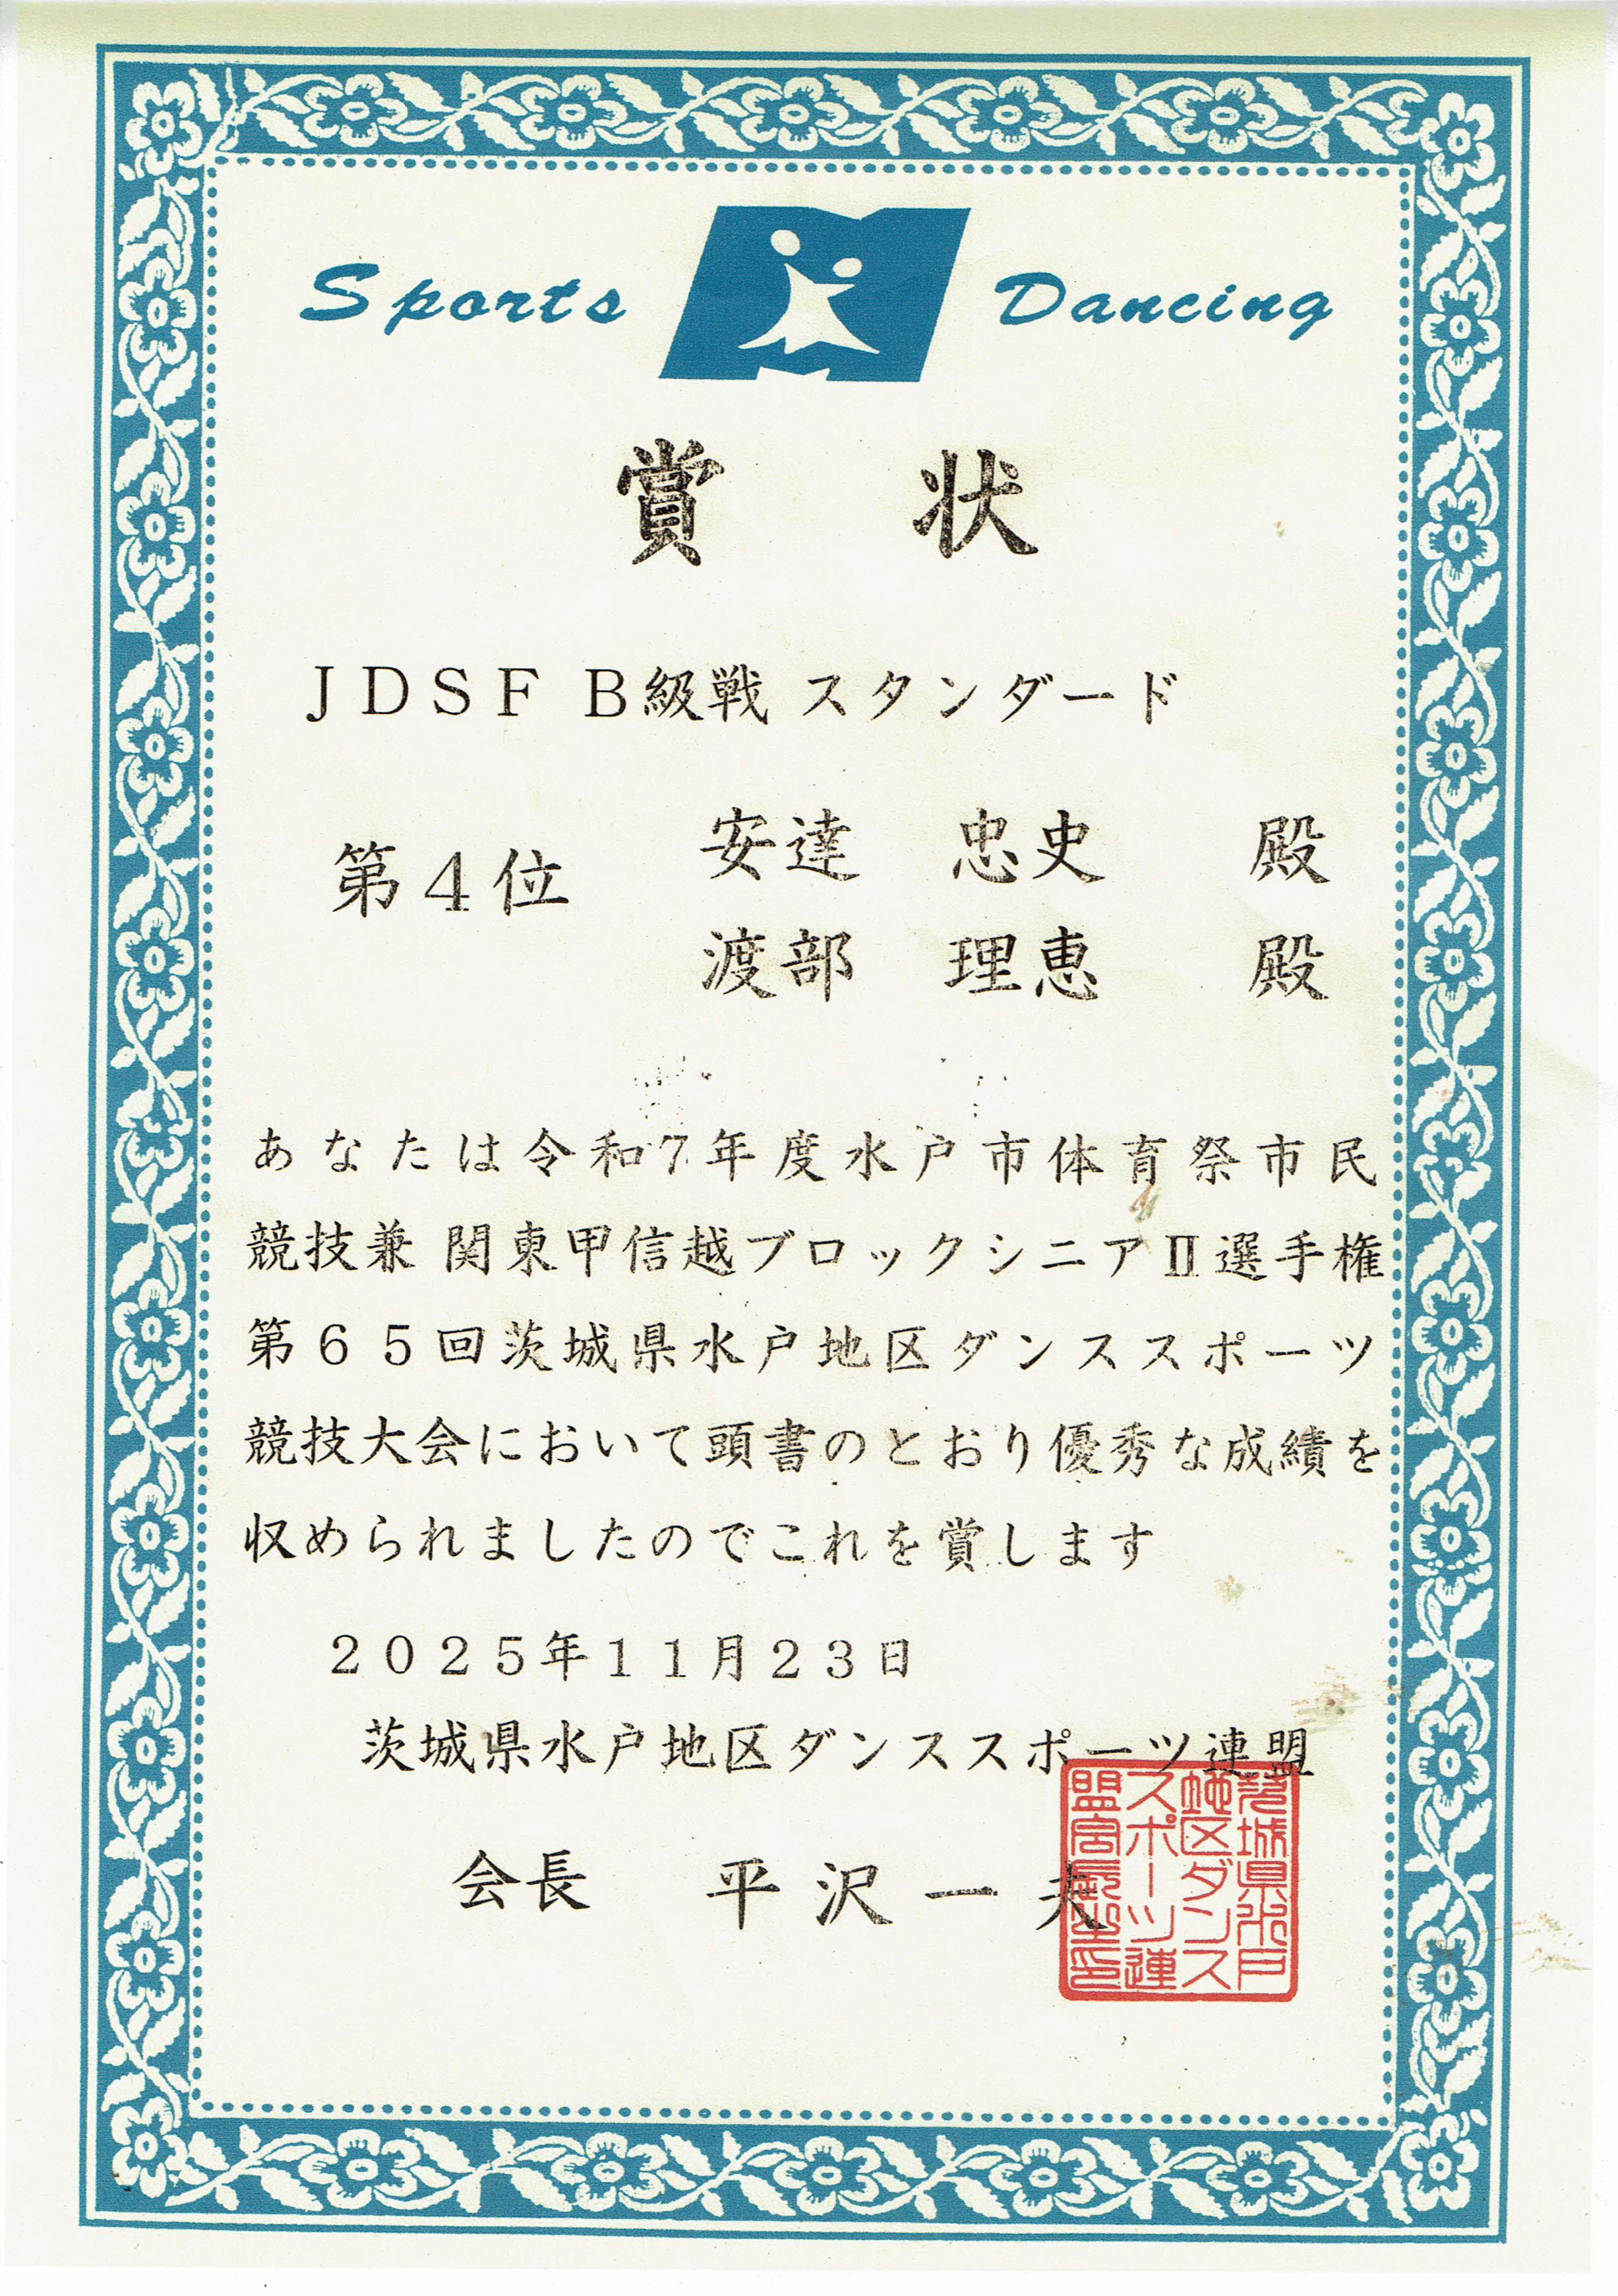 Sports Dancing
賞状
JDSF B級戦 スタンダード
第4位
安達 忠史 殿
渡部 理恵 殿
あなたは令和7年度水戸市体育祭市民
競技兼 関東甲信越ブロックシニアⅡ選手権
第65回茨城県水戸地区ダンススポーツ
競技大会において頭書のとおり優秀な成績を
収められましたのでこれを賞します
2025年11月23日
茨城県水戸地区ダンススポーツ連盟
会長 平沢一夫
茨城県水戸
地区ダンス
スポーツ連
盟会長之印